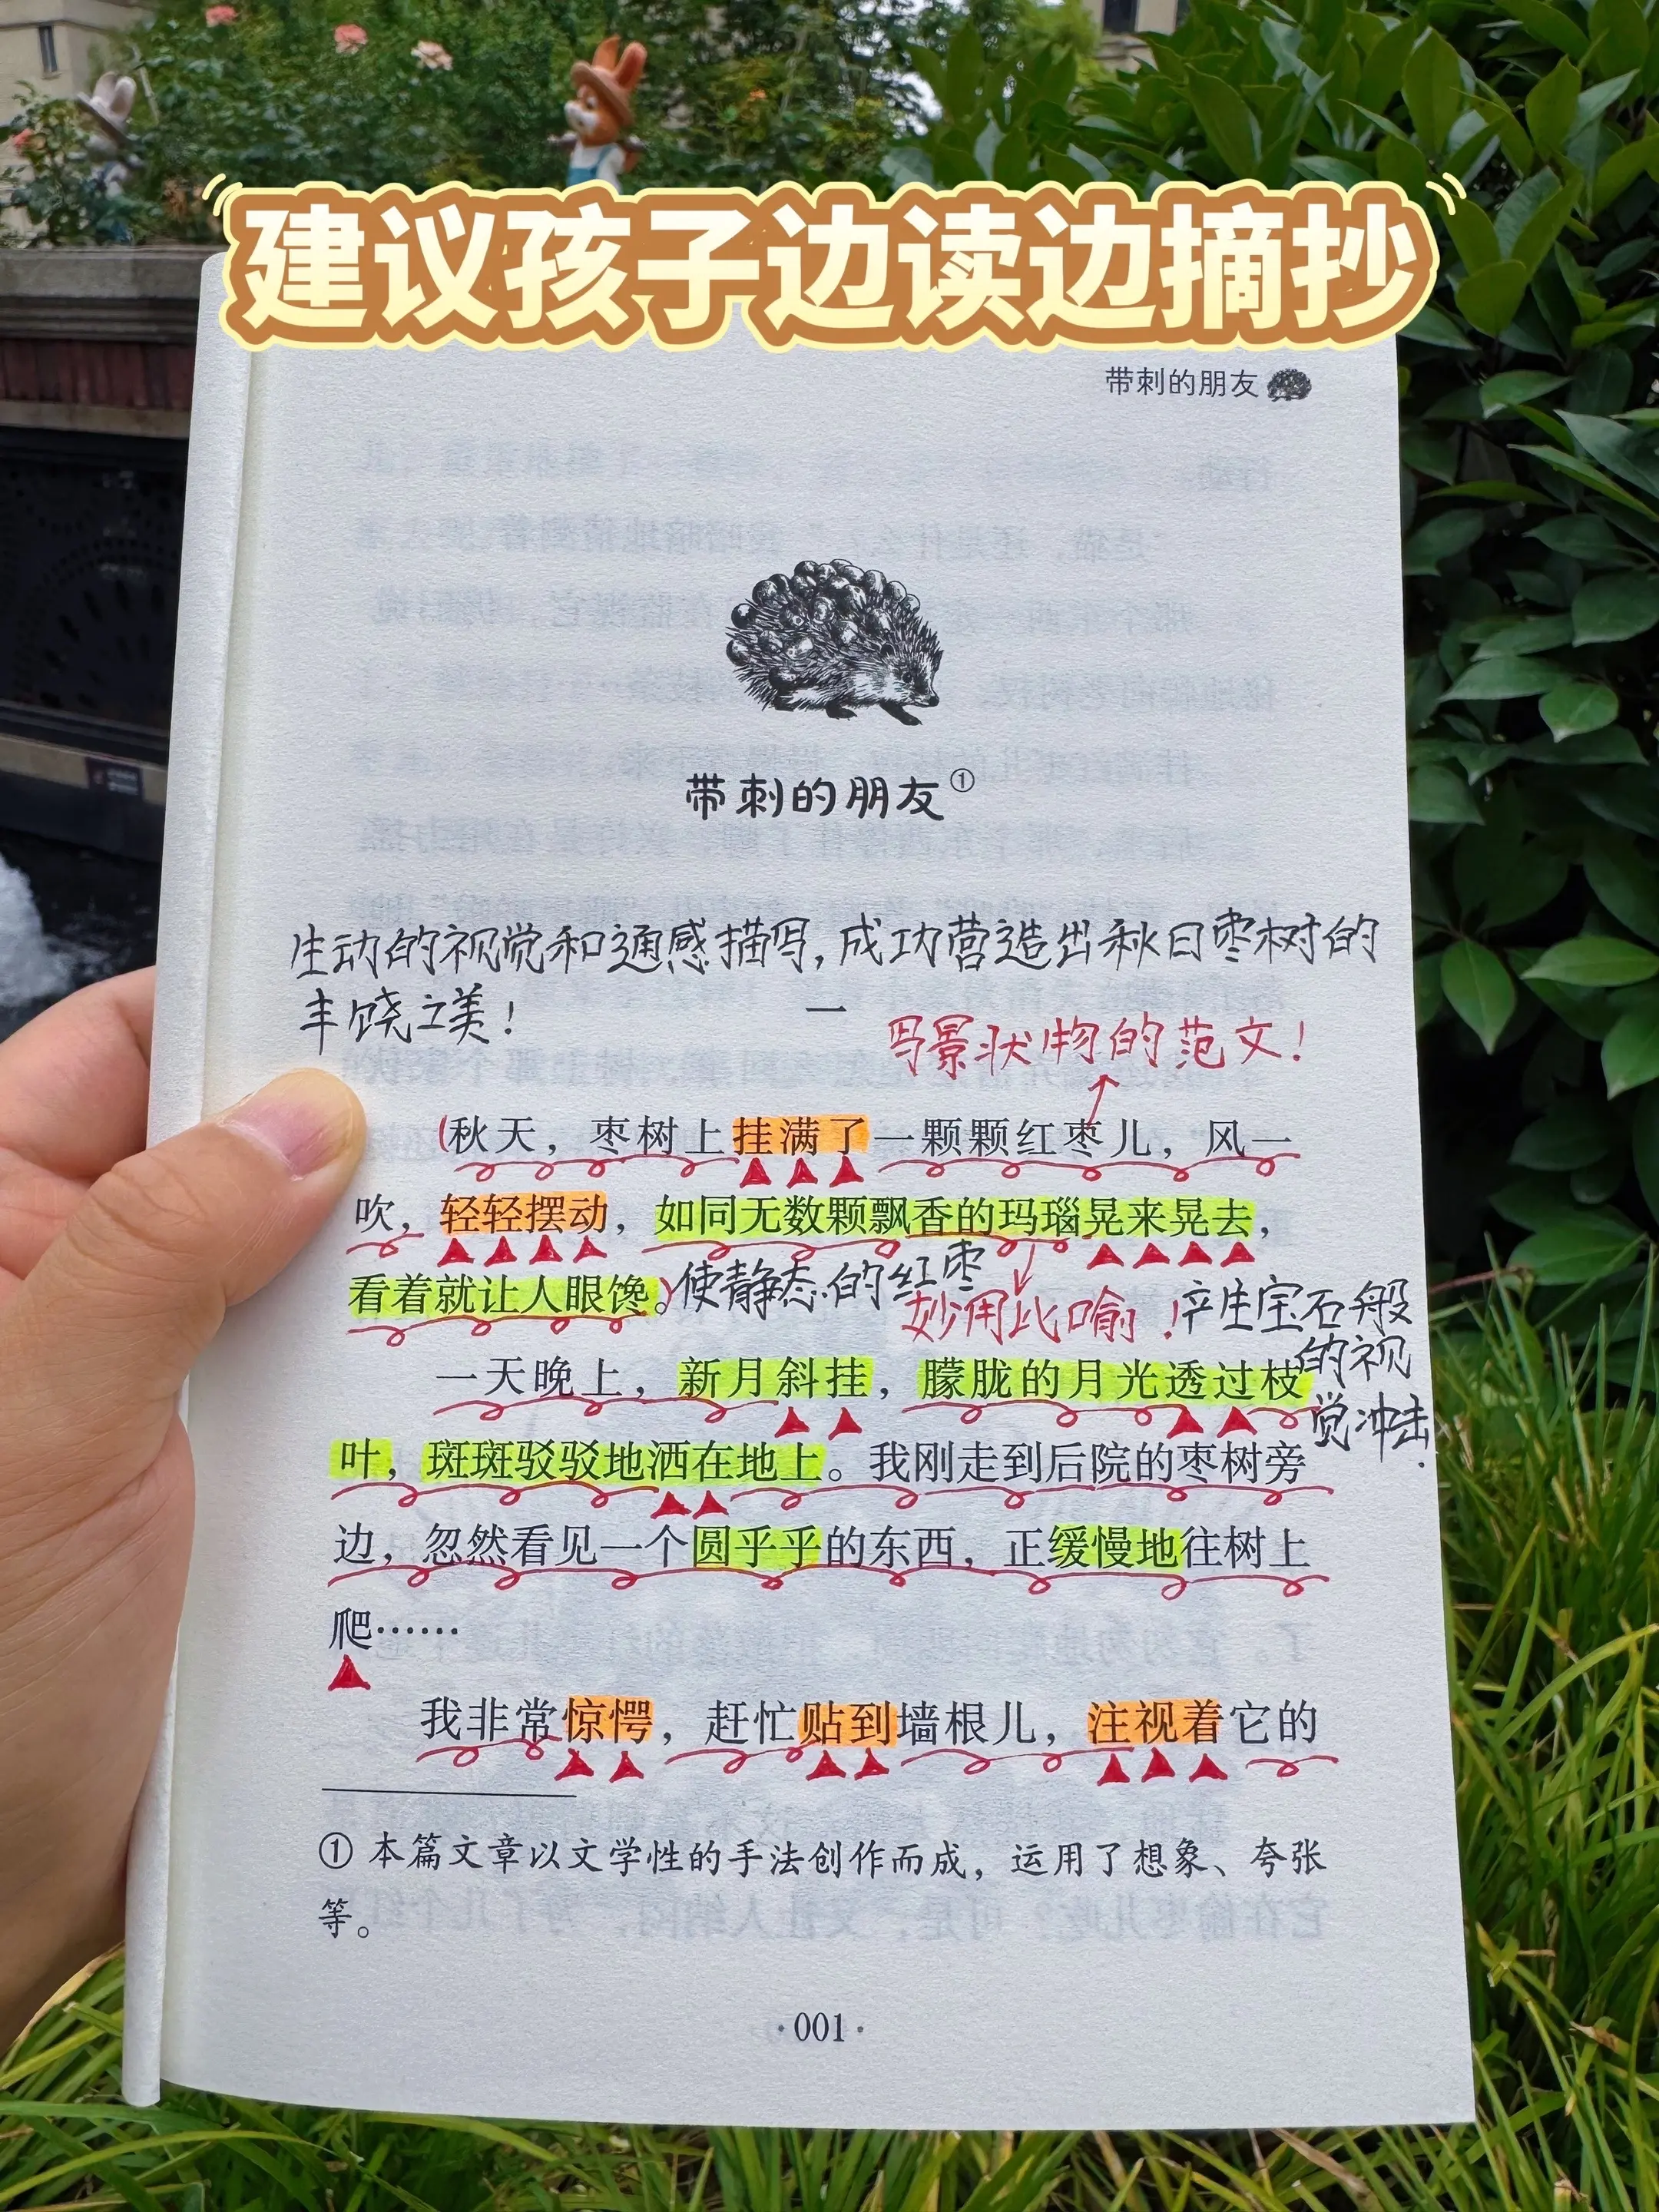 建议孩子边读边摘抄
带刺的朋友
带刺的朋友①
生动的视觉和通感描写,成功营造出秋日枣树的
丰饶之美!
一
写景状物的范文!
(秋天，枣树上挂满了一颗颗红枣儿，风一
吹，轻轻摆动，如同无数颗飘香的玛瑙晃来晃去，
看着就让人眼馋。)
使静态的红枣
妙用比喻!
产生宝石般
的视
觉冲击.
一天晚上，新月斜挂，朦胧的月光透过枝
叶，斑斑驳驳地洒在地上。我刚走到后院的枣树旁
边，忽然看见一个圆乎乎的东西，正缓慢地往树上
爬……
我非常惊愕，赶忙贴到墙根儿，注视着它的
① 本篇文章以文学性的手法创作而成，运用了想象、夸张
等。
·001·